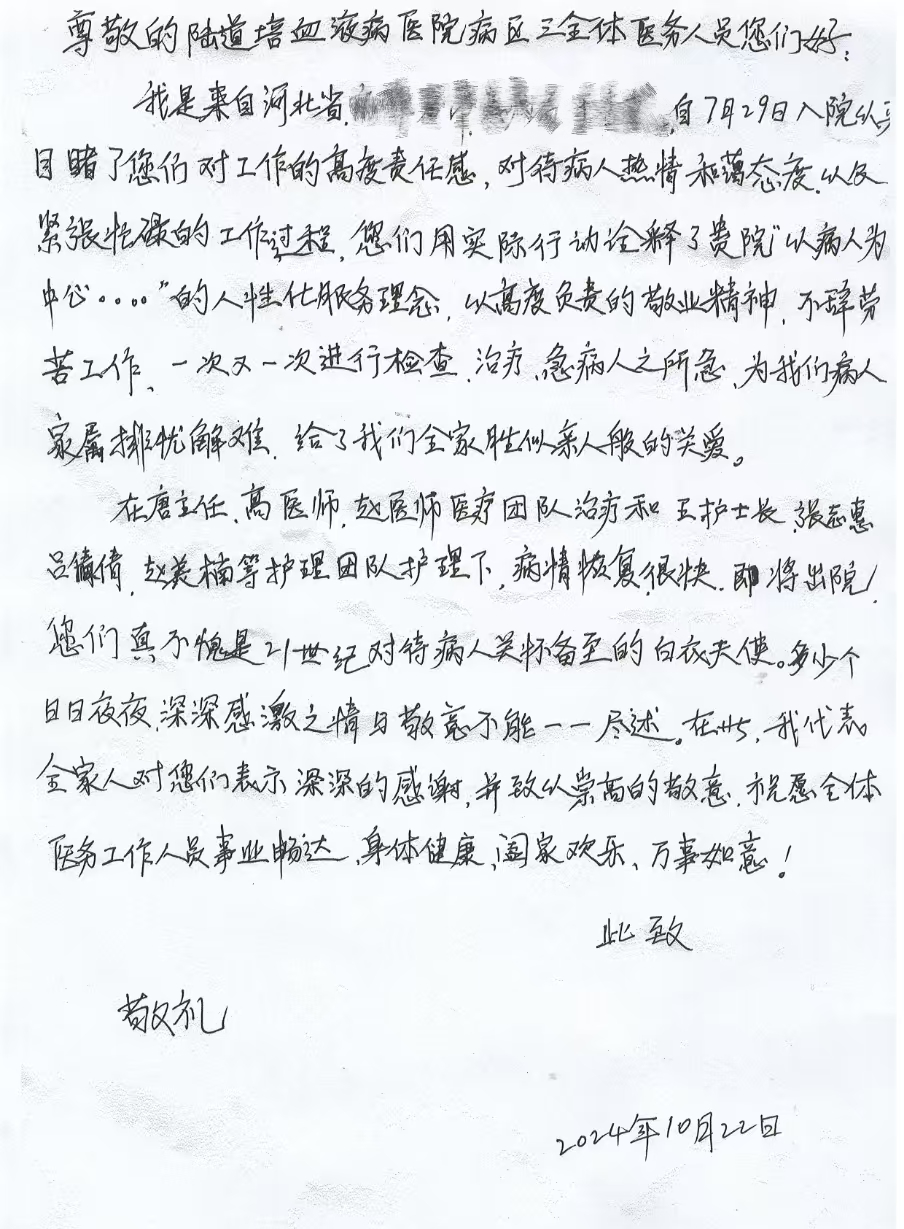 尊敬的陆道培血液病医院病区三全体医务人员您们好:
我是来自河北省 自7月29日入院以来
目睹了您们对工作的高度责任感,对待病人热情和蔼态度,以及
紧张忙碌的工作过程,您们用实际行动诠释了贵院"以病人为
中心....."的人性化服务理念,以高度负责的敬业精神,不辞劳
苦工作、一次又一次进行检查、治疗、急病人之所急、为我们病人
家属排忧解难,给了我们全家胜似亲人般的关爱。
在唐主任、高医师,赵医师医疗团队治疗和王护士长、张志惠
吕倩倩,赵美楠等护理团队护理下,病情恢复很快.即将出院,
您们真不愧是21世纪对待病人关怀备至的白衣天使。多少个
日日夜夜,深深感激之情与敬意不能一一尽述。在此,我代表
全家人对您们表示深深的感谢,并致以崇高的敬意,祝愿全体
医务工作人员事业畅达、身体健康、阖家欢乐、万事如意!
此致
敬礼
2024年10月22日